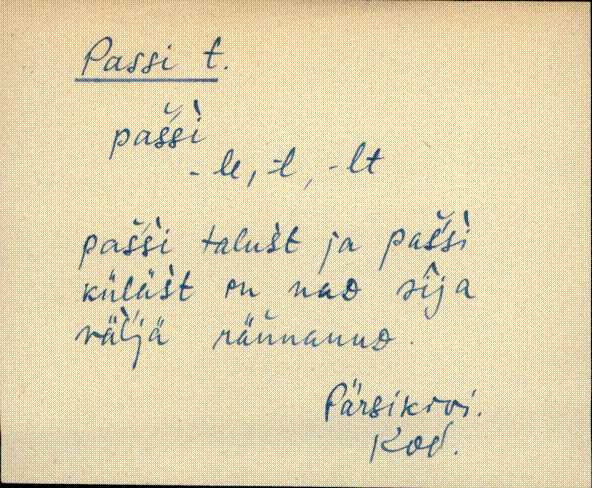 Passi t.
pašši
-le, -l, -lt
pašši talušt ja pašši
küläšt on nad sîja
väljä rännanud.
Pärsikivi.
Kod.